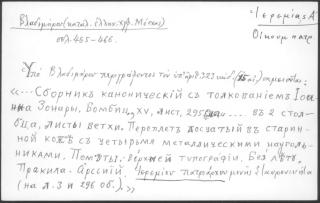 Βλαδιμήρου (καταλ. ἑλλην. χφ. Μόσχας)
σελ. 455-466.
Ἱερεμίας Α΄
Οἰκουμ. πατρ.
Ὑπὸ Βλαδιμήρου περιγράφεται τὸν ὑπ' ἀριθ. 323 κώδ. σημειοῦται:
«...Сборникъ каноническій съ толкованіемъ Іоа-
нна Зонары, Бомбиц., XV, лист, 295 ... въ 2 стол-
бца, листы ветхи. Переплетъ досчатый въ старин-
ной кожѣ съ четырьмя металлическими науголь-
никами. Помѣты: верхней типографіи, Безъ лѣтъ.
Правила. Арсеній. Ἱερεμίου πατριάρχου
(на л. 3 и 296 об.).»